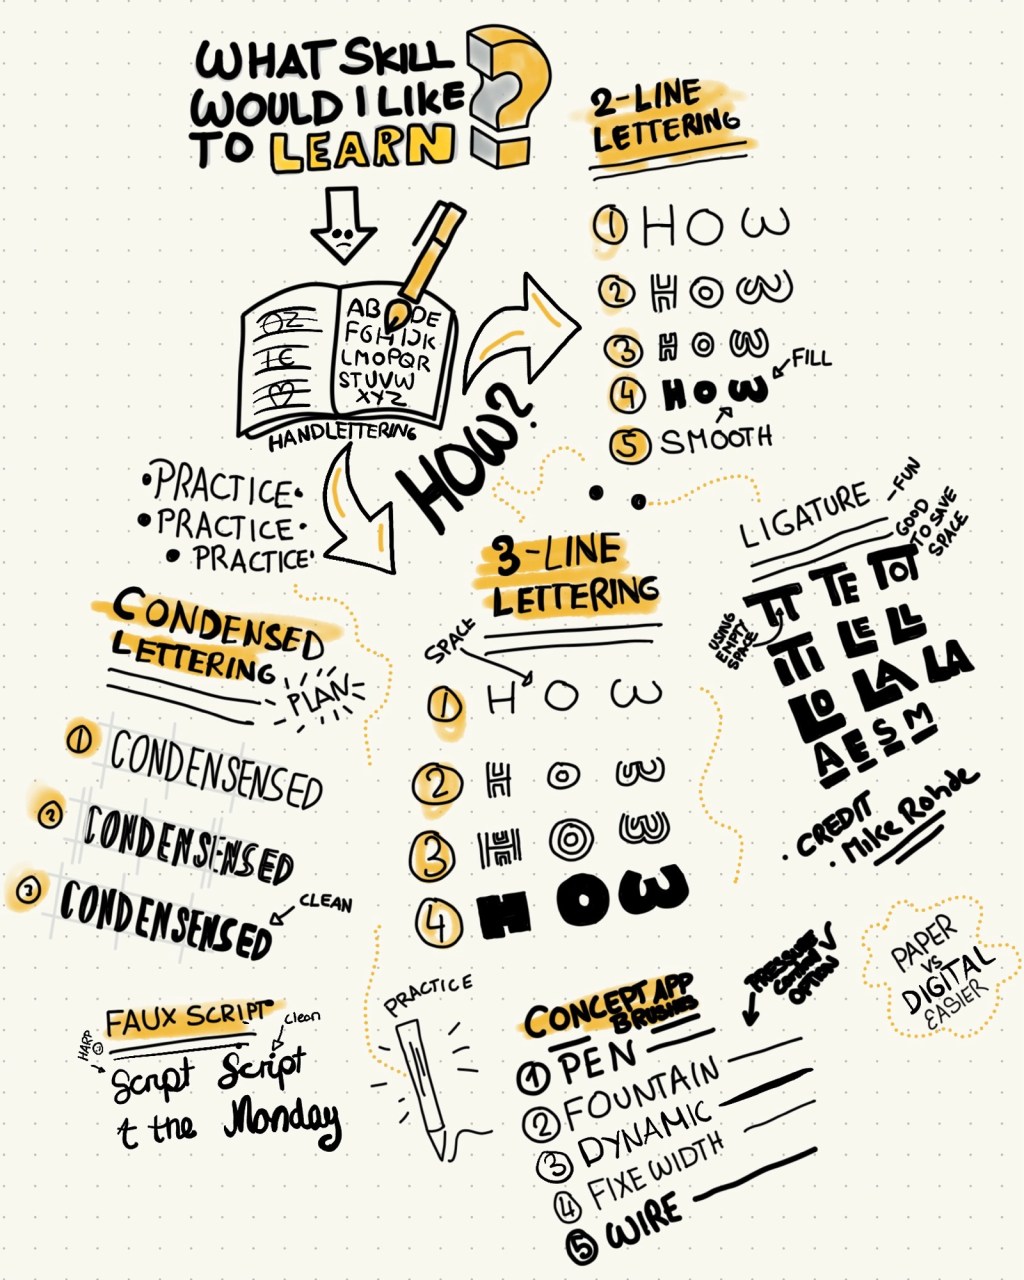 WHAT SKILL
WOULD I LIKE
TO LEARN?
AB DE
FGHIJK
LMOPQR
STUVW
XYZ
HANDLETTERING
HOW?
•PRACTICE•
•PRACTICE•
•PRACTICE•
2-LINE
LETTERING
1 HOW
2 HOW
3 HOW
4 HOW
FILL
5 SMOOTH
LIGATURE
-FUN
GOOD
TO SAVE
SPACE
USING
EMPTY
SPACE
TT TE TOT
ITI LE LL
LO LA LA
A E S M
• CREDIT
• Mike Rohde
3-LINE
LETTERING
SPACE
1 H O W
2 H O W
3 H O W
4 H O W
CONDENSED
LETTERING
PLAN
1 CONDENSENSED
2 CONDENSENSED
3 CONDENSENSED
CLEAN
FAUX SCRIPT
clean
HARD
Script Script
t the Monday
PRACTICE
CONCEPT APP
BRUSHES
PRESSURE
Control
OPTION
1 PEN
2 FOUNTAIN
3 DYNAMIC
4 FIXE WIDTH
5 WIRE
PAPER
VS
DIGITAL
EASIER